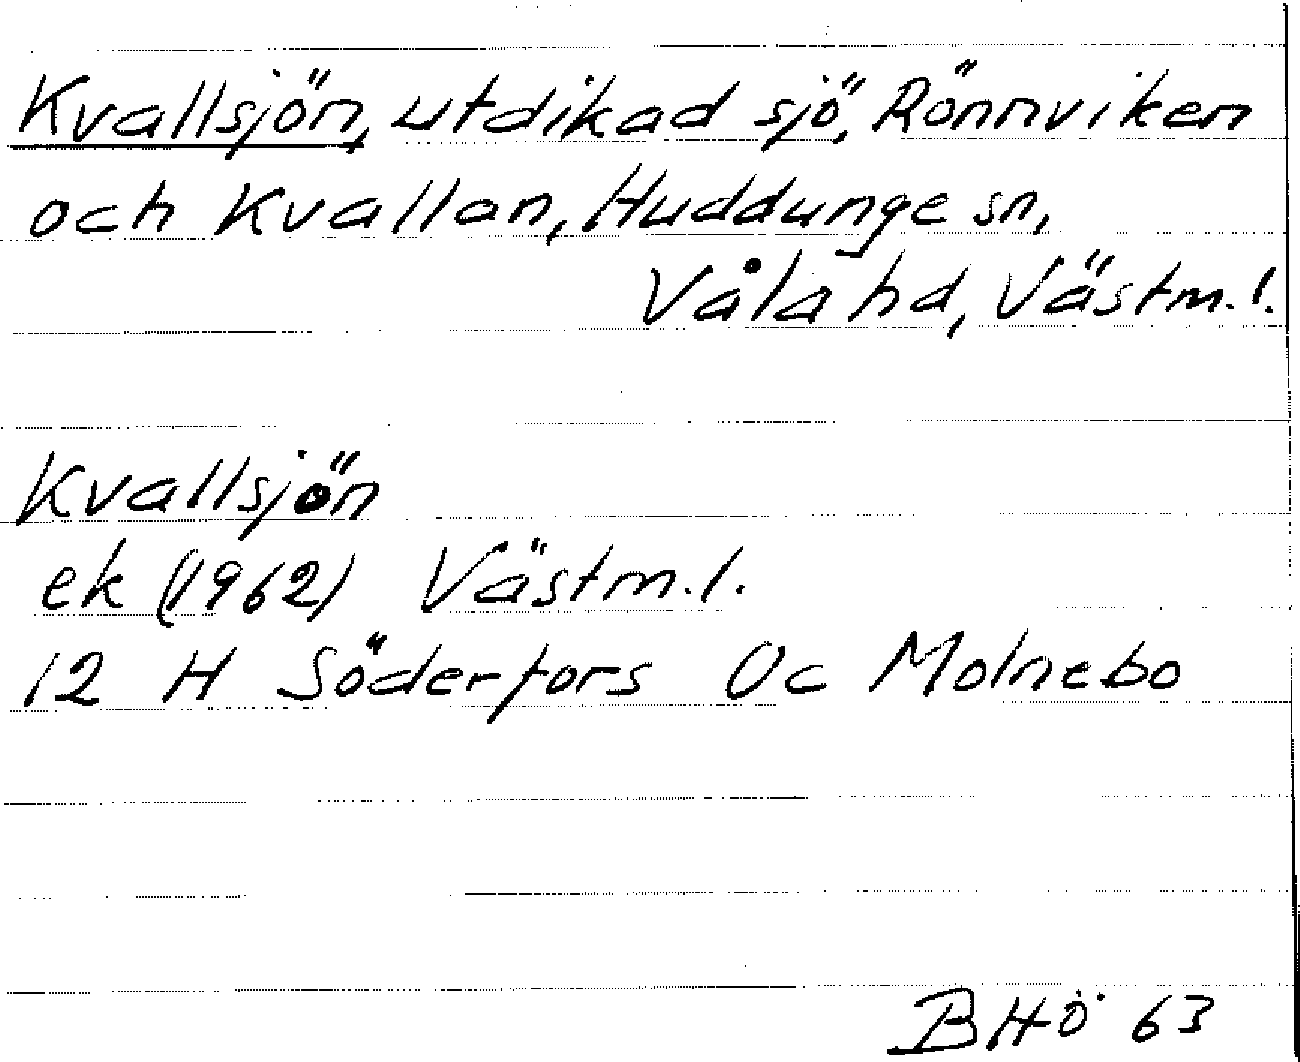 Kvallsjön, utdikad sjö, Rönnviken
och Kvallan, Huddunge sn,
Våla hd, Västm. l.
Kvallsjön
ek (1962) Västm. l.
12 H Söderfors Oc Molnebo
BHÖ 63